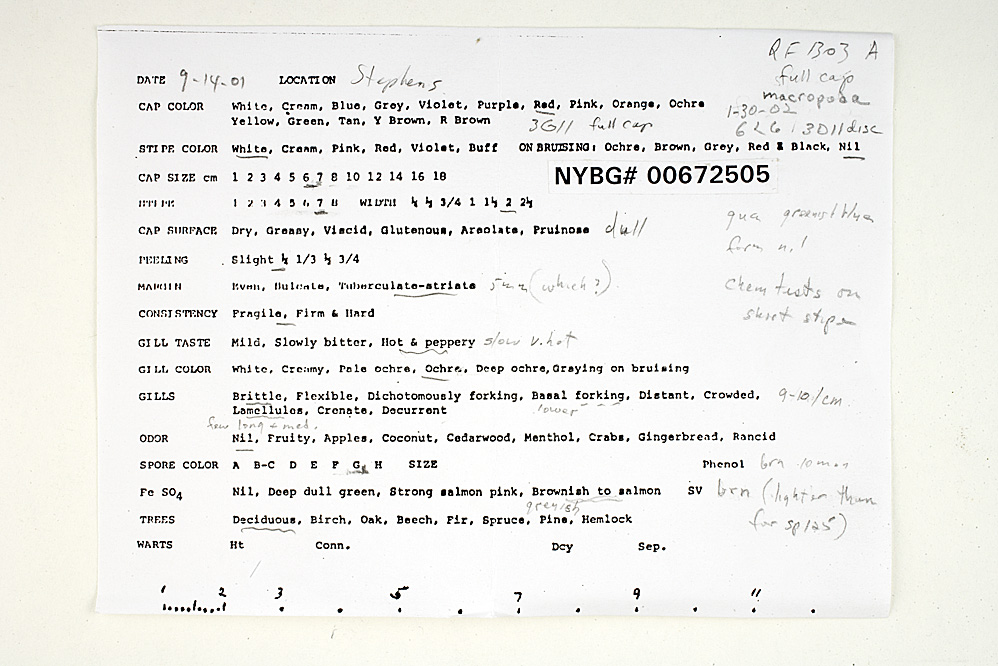 RF 1303 A
full cap
macropoda
1-30-02
6L6 13D11 disc
DATE 9-14-01 LOCATION Stephens
CAP COLOR White, Cream, Blue, Grey, Violet, Purple, Red, Pink, Orange, Ochre
Yellow, Green, Tan, Y Brown, R Brown 3G11 full cap
STIPE COLOR White, Cream, Pink, Red, Violet, Buff ON BRUISING: Ochre, Brown, Grey, Red & Black, Nil
CAP SIZE cm 1 2 3 4 5 6 7 8 10 12 14 16 18
NYBG# 00672505
STIPE 1 2 3 4 5 6 7 8 WIDTH ¼ ½ 3/4 1 1½ 2 2½
CAP SURFACE Dry, Greasy, Viscid, Glutenous, Areolate, Pruinose dull
form n.!
PEELING Slight ¼ 1/3 ½ 3/4
MARGIN Even, Sulcate, Tuberculate-striate (which?)
Chem tests on
short stipe
CONSISTENCY Fragile, Firm & Hard
GILL TASTE Mild, Slowly bitter, Hot & peppery slow v. hot
GILL COLOR White, Creamy, Pale ochre, Ochre, Deep ochre, Graying on bruising
GILLS Brittle, Flexible, Dichotomously forking, Basal forking, Distant, Crowded, 9-10/cm.
Lamellules, Crenate, Decurrent lower
few long & med.
ODOR Nil, Fruity, Apples, Coconut, Cedarwood, Menthol, Crabs, Gingerbread, Rancid
SPORE COLOR A B-C D E F G H SIZE Phenol brn 10 min
Fe SO4 Nil, Deep dull green, Strong salmon pink, Brownish to salmon SV brn (lighter than
greyish for sp 125)
TREES Deciduous, Birch, Oak, Beech, Fir, Spruce, Pine, Hemlock
WARTS Ht Conn. Dcy Sep.
1 2 3 5 7 9 11